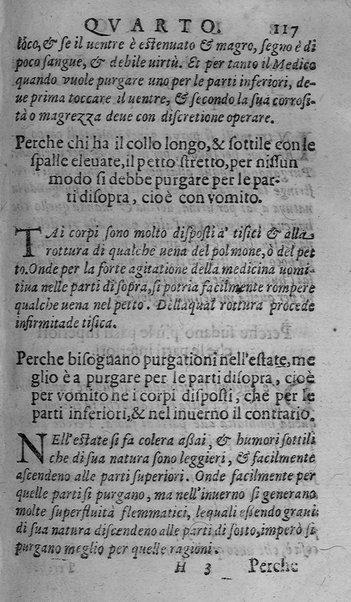 QVARTO. 117
loco, & se il uentre è estenuato & magro, segno è di
poco sangue, & debile uirtù. Et per tanto il Medico
quando vuole purgare uno per le parti inferiori, de-
ue prima toccare il uentre, & secondo la sua corrosi-
tà o magrezza deue con discretione operare.
Perche chi ha il collo longo, & sottile con le
spalle eleuate, il petto stretto, per nissun
modo si debbe purgare per le par-
ti disopra, cioè con vomito.
TAi corpi sono molto disposti a' tisiti & alla
rottura di qualche uena del polmone, ò del pet
to. Onde per la forte agitatione della medicina uomi-
tiua nelle parti di sopra, si potria facilmente rompere
qualche uena nel petto. Della qual rottura procede
infirmitade tisica.
Perche bisognano purgationi nell'estate, me
glio è a purgare per le parti disopra, cioè
per vomito ne i corpi disposti, che per le
parti inferiori, & nel inuerno il contrario.
NEll'estate si fa colera assai, & humori sottili
che di sua natura sono leggieri, & facilmente
ascendeno alle parti superiori. Onde facilmente per
quelle parti si purgano, ma nell'inuerno si generano
molte superfluità flemmatici, lequali essendo graui
di sua natura discendeno alle parti di sotto, imperò si
purgano meglio per quelle ragioni.
H 3 Perche